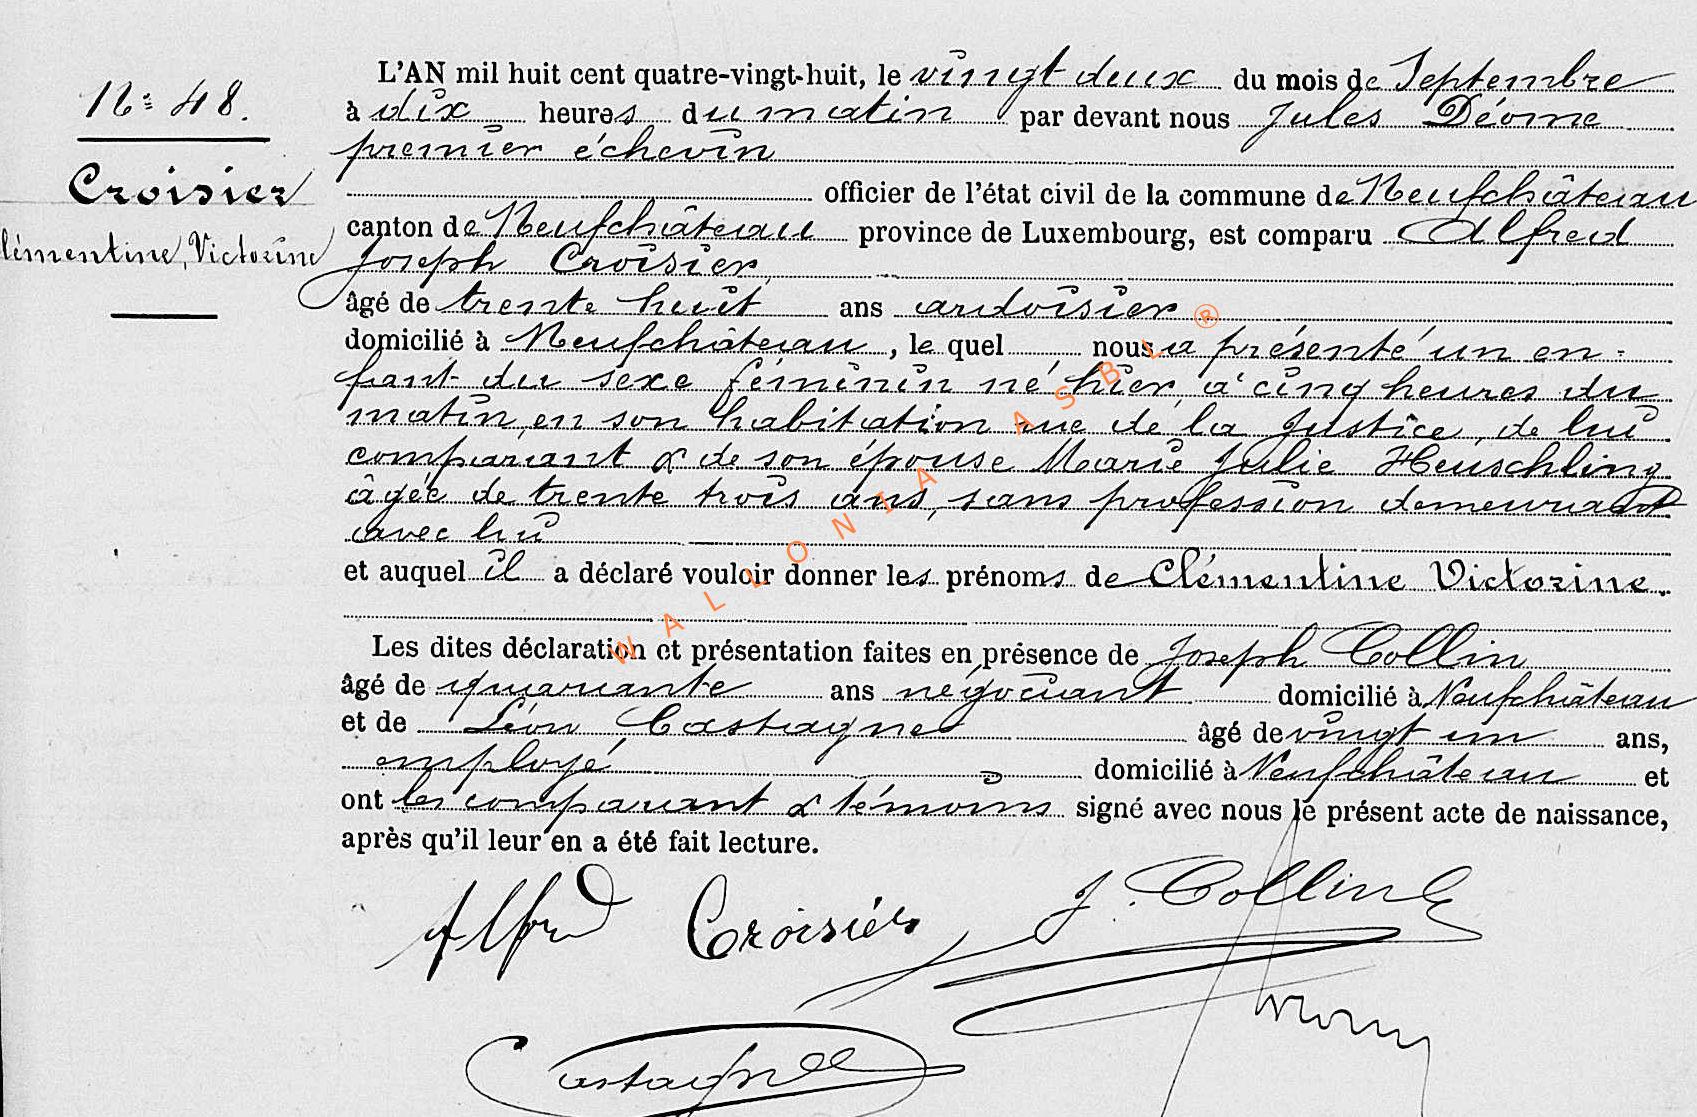 N° 48.
Croisier
Clémentine, Victorine
L'AN mil huit cent quatre-vingt-huit, le vingt deux du mois de Septembre
à dix heures du matin par devant nous Jules Déome
premier échevin
officier de l'état civil de la commune de Neufchâteau
canton de Neufchâteau province de Luxembourg, est comparu Alfred
Joseph Croisier,
âgé de trente huit ans ardoisier
domicilié à Neufchâteau, le quel nous a présenté un en=
fant du sexe féminin né hier, à cinq heures du
matin, en son habitation rue de la Justice, de lui
comparant & de son épouse Marie Julie Heuschling
âgée de trente trois ans, sans profession demeurant
avec lui
et auquel il a déclaré vouloir donner les prénoms de Clémentine Victorine.
Les dites déclaration et présentation faites en présence de Joseph Collin
âgé de quarante ans négociant domicilié à Neufchâteau
et de Léon Castagne âgé de vingt un ans,
employé domicilié à Neufchâteau et
ont les comparant & témoins signé avec nous le présent acte de naissance,
après qu'il leur en a été fait lecture.
Alfred Croisier J. Collin
Castagne
WALLONIA ASBL ®